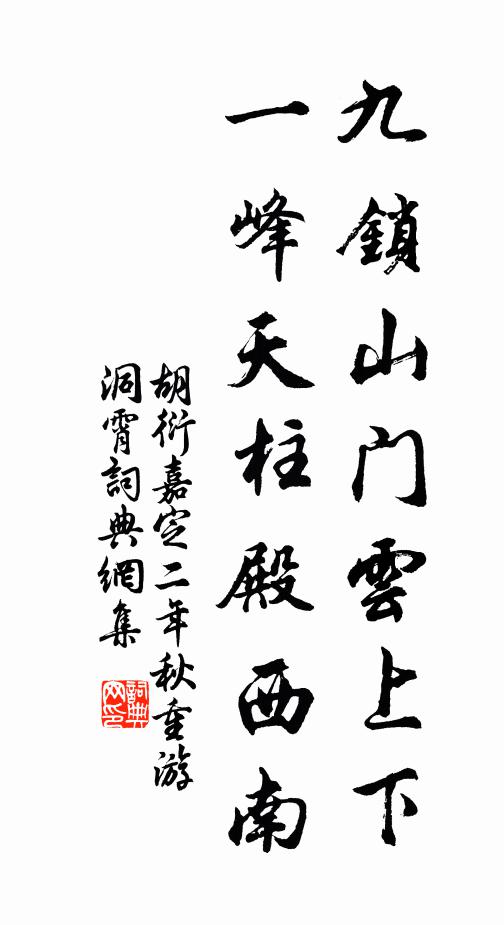 九鎖山门雲上下
一峰天柱殿西南
胡衍嘉定二年秋重游
洞霄詞典網集
詞典网印